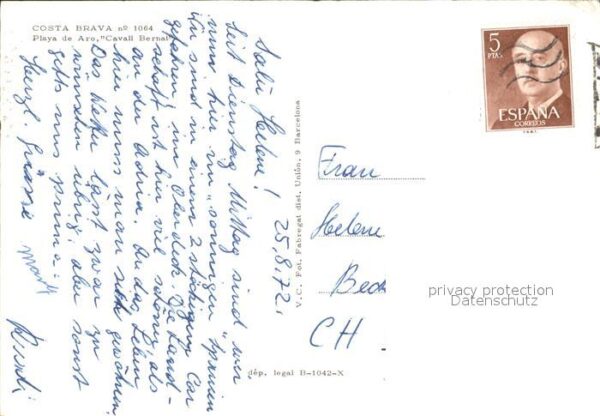 COSTA BRAVA nº 1064
Playa de Aro, "Cavall Bernat"
Salü Helene! 25.8.72.
Seit Dienstag Mittag sind wir
nun hier im "sonnigen" Spanien
Wir sind in einem 2 stöckigen Car
gefahren, im Oberdeck. Die Land-
schaft ist hier viel schöner als
an der Adria. An das Leben
hier muss man sich gewöhnen.
Das Wetter lässt zwar zu
wünschen übrig, aber sonst
gehts uns prima.
Herzl. Grüsse
V. C. Fot. Fabregat dist. Unión, 9 Barcelona
dép. legal B-1042-X
5
PTAS
ESPAÑA
CORREOS
Frau
Helene
Beck
CH
privacy protection
Datenschutz